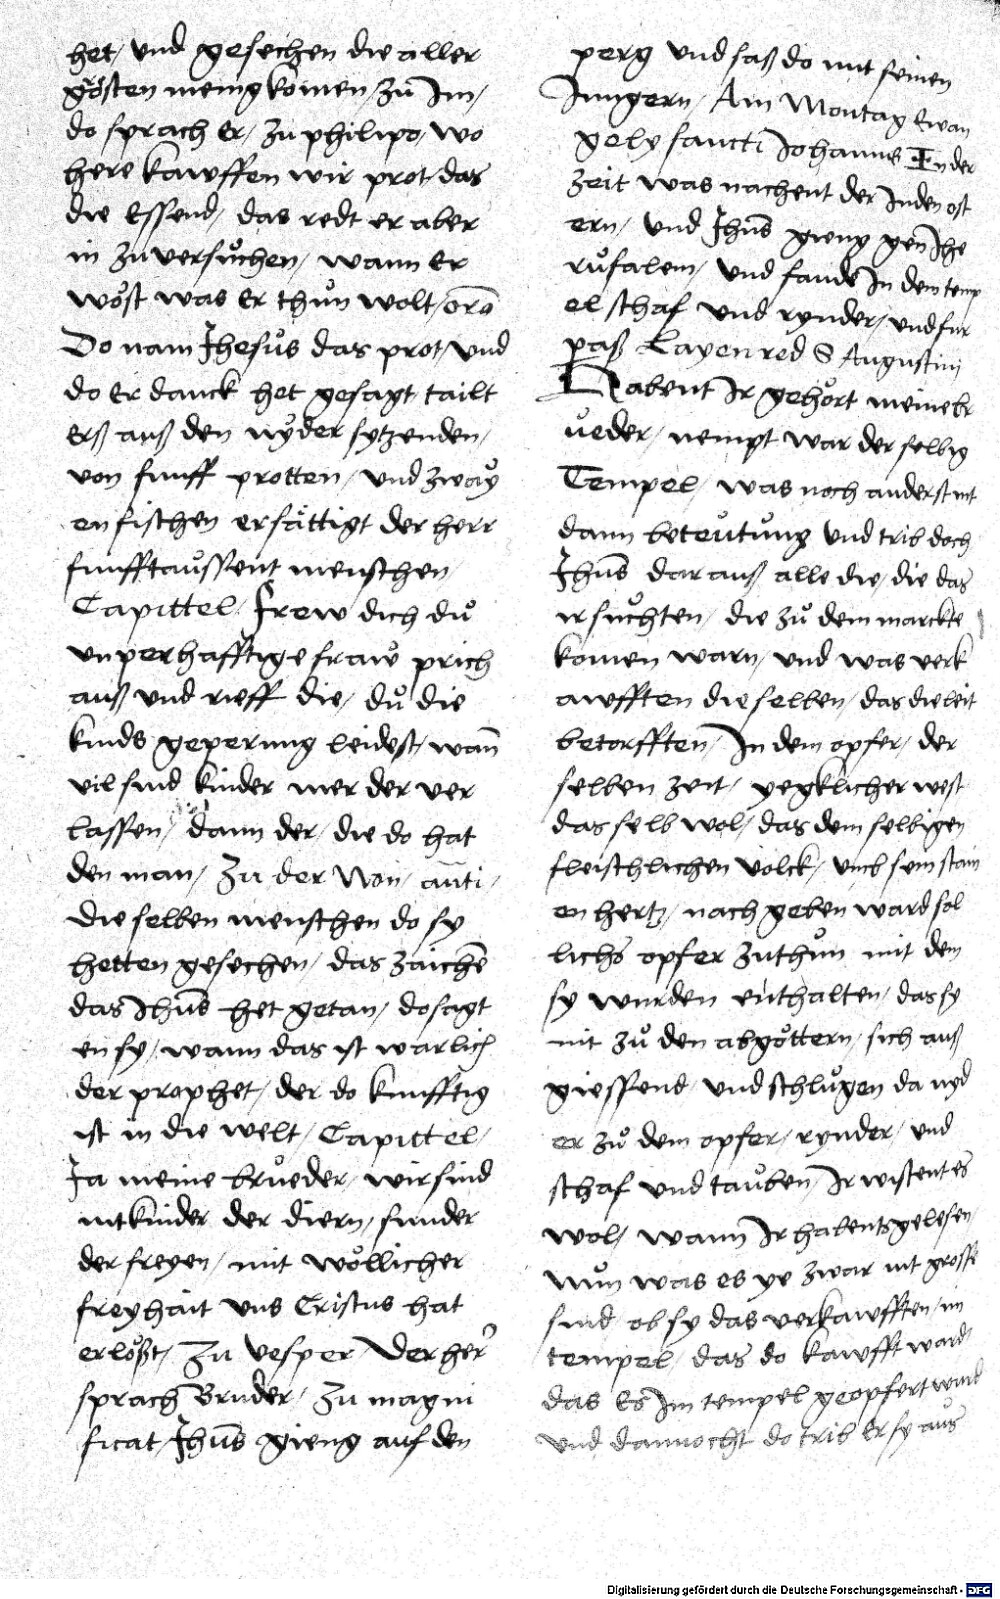 het / und gesechen die aller
grösten menig komen / zů Im /
do sprach Er / zu philipo / wo
here kawffen wir prot / das
die Essend / das redt er aber
in zu versůchen / wann Er
wöst was Er thůn wolt / orō
Do nam Jhesůs das prot / und
do Er danck het gesagt tailt
erß auß den nyder sytzenden /
von funff protten / und zway
en fischen ersättigt der herr
funfftaůssent menschen /
Capittel / frew dich dů
unperhafftige fraẘ prich
auß und rieff die / dů die
kinds geperung leidest / wañ
vil sind kinder mer der ver
lassen / dann der / die do hat
den man / Zu der Non / anti /
die selben menschen do sy
hetten gesechen / das zaichē
das Jhūs het getan / do sagt
en sy / wann das ist warlich
der prophet / der do kunfftig
ist in die welt / Capittel /
Ja meine brůeder / wir sind
nit kinder der diern / sunder
der freyen / mit wöllicher
freyhait uns Cristus hat
erlößt / Zu vesper / Der her̄
sprach Bruder / Zu magni
ficat / Jhūs gieng auf den
perg und saß do mit seinen
Jungern / Am Montag Ewan
gely sancti Johannis In der
zeit was nachent der Juden ost
ern / und Jhūs gieng gen Jhe
růsalem / und fande In dem temp
el schaf und rynder / und fur
paß Layen red S Augustinj
Habent Ir gehört meine br
ueder / nempt war der selbig
Tempel / was noch anderst nit
dann beteůtůng und trib doch
Jhūs dar auß alle die / die das
ir sůchten / die zů dem marckte
komen warn / und was verk
awfften die selben / das die leit
betorfften / In dem opfer / der
selben zeit / yegklicher west
das selb wol / das dem selbigen
fleischlichen volck / umb sein stain
en hertz / nach geben ward sol
lichs opfer zuthůn mit dem
sy wurden enthalten / das sy
nit zů den abgöttern / sich auß
giessend / und schlůgen da nyd
er zů dem opfer / rynder / und
schaf und taůben / Ir wistent es
wol / wann Ir habents gelesen /
nůn was es ye zwar nit grosse
sind ob sy das verkawfften / im
tempel / das do kawfft ward /
das Es Im tempel geopfert wurd
und dannocht do trib Er sy aůs
Digitalisierung gefördert durch die Deutsche Forschungsgemeinschaft - DFG